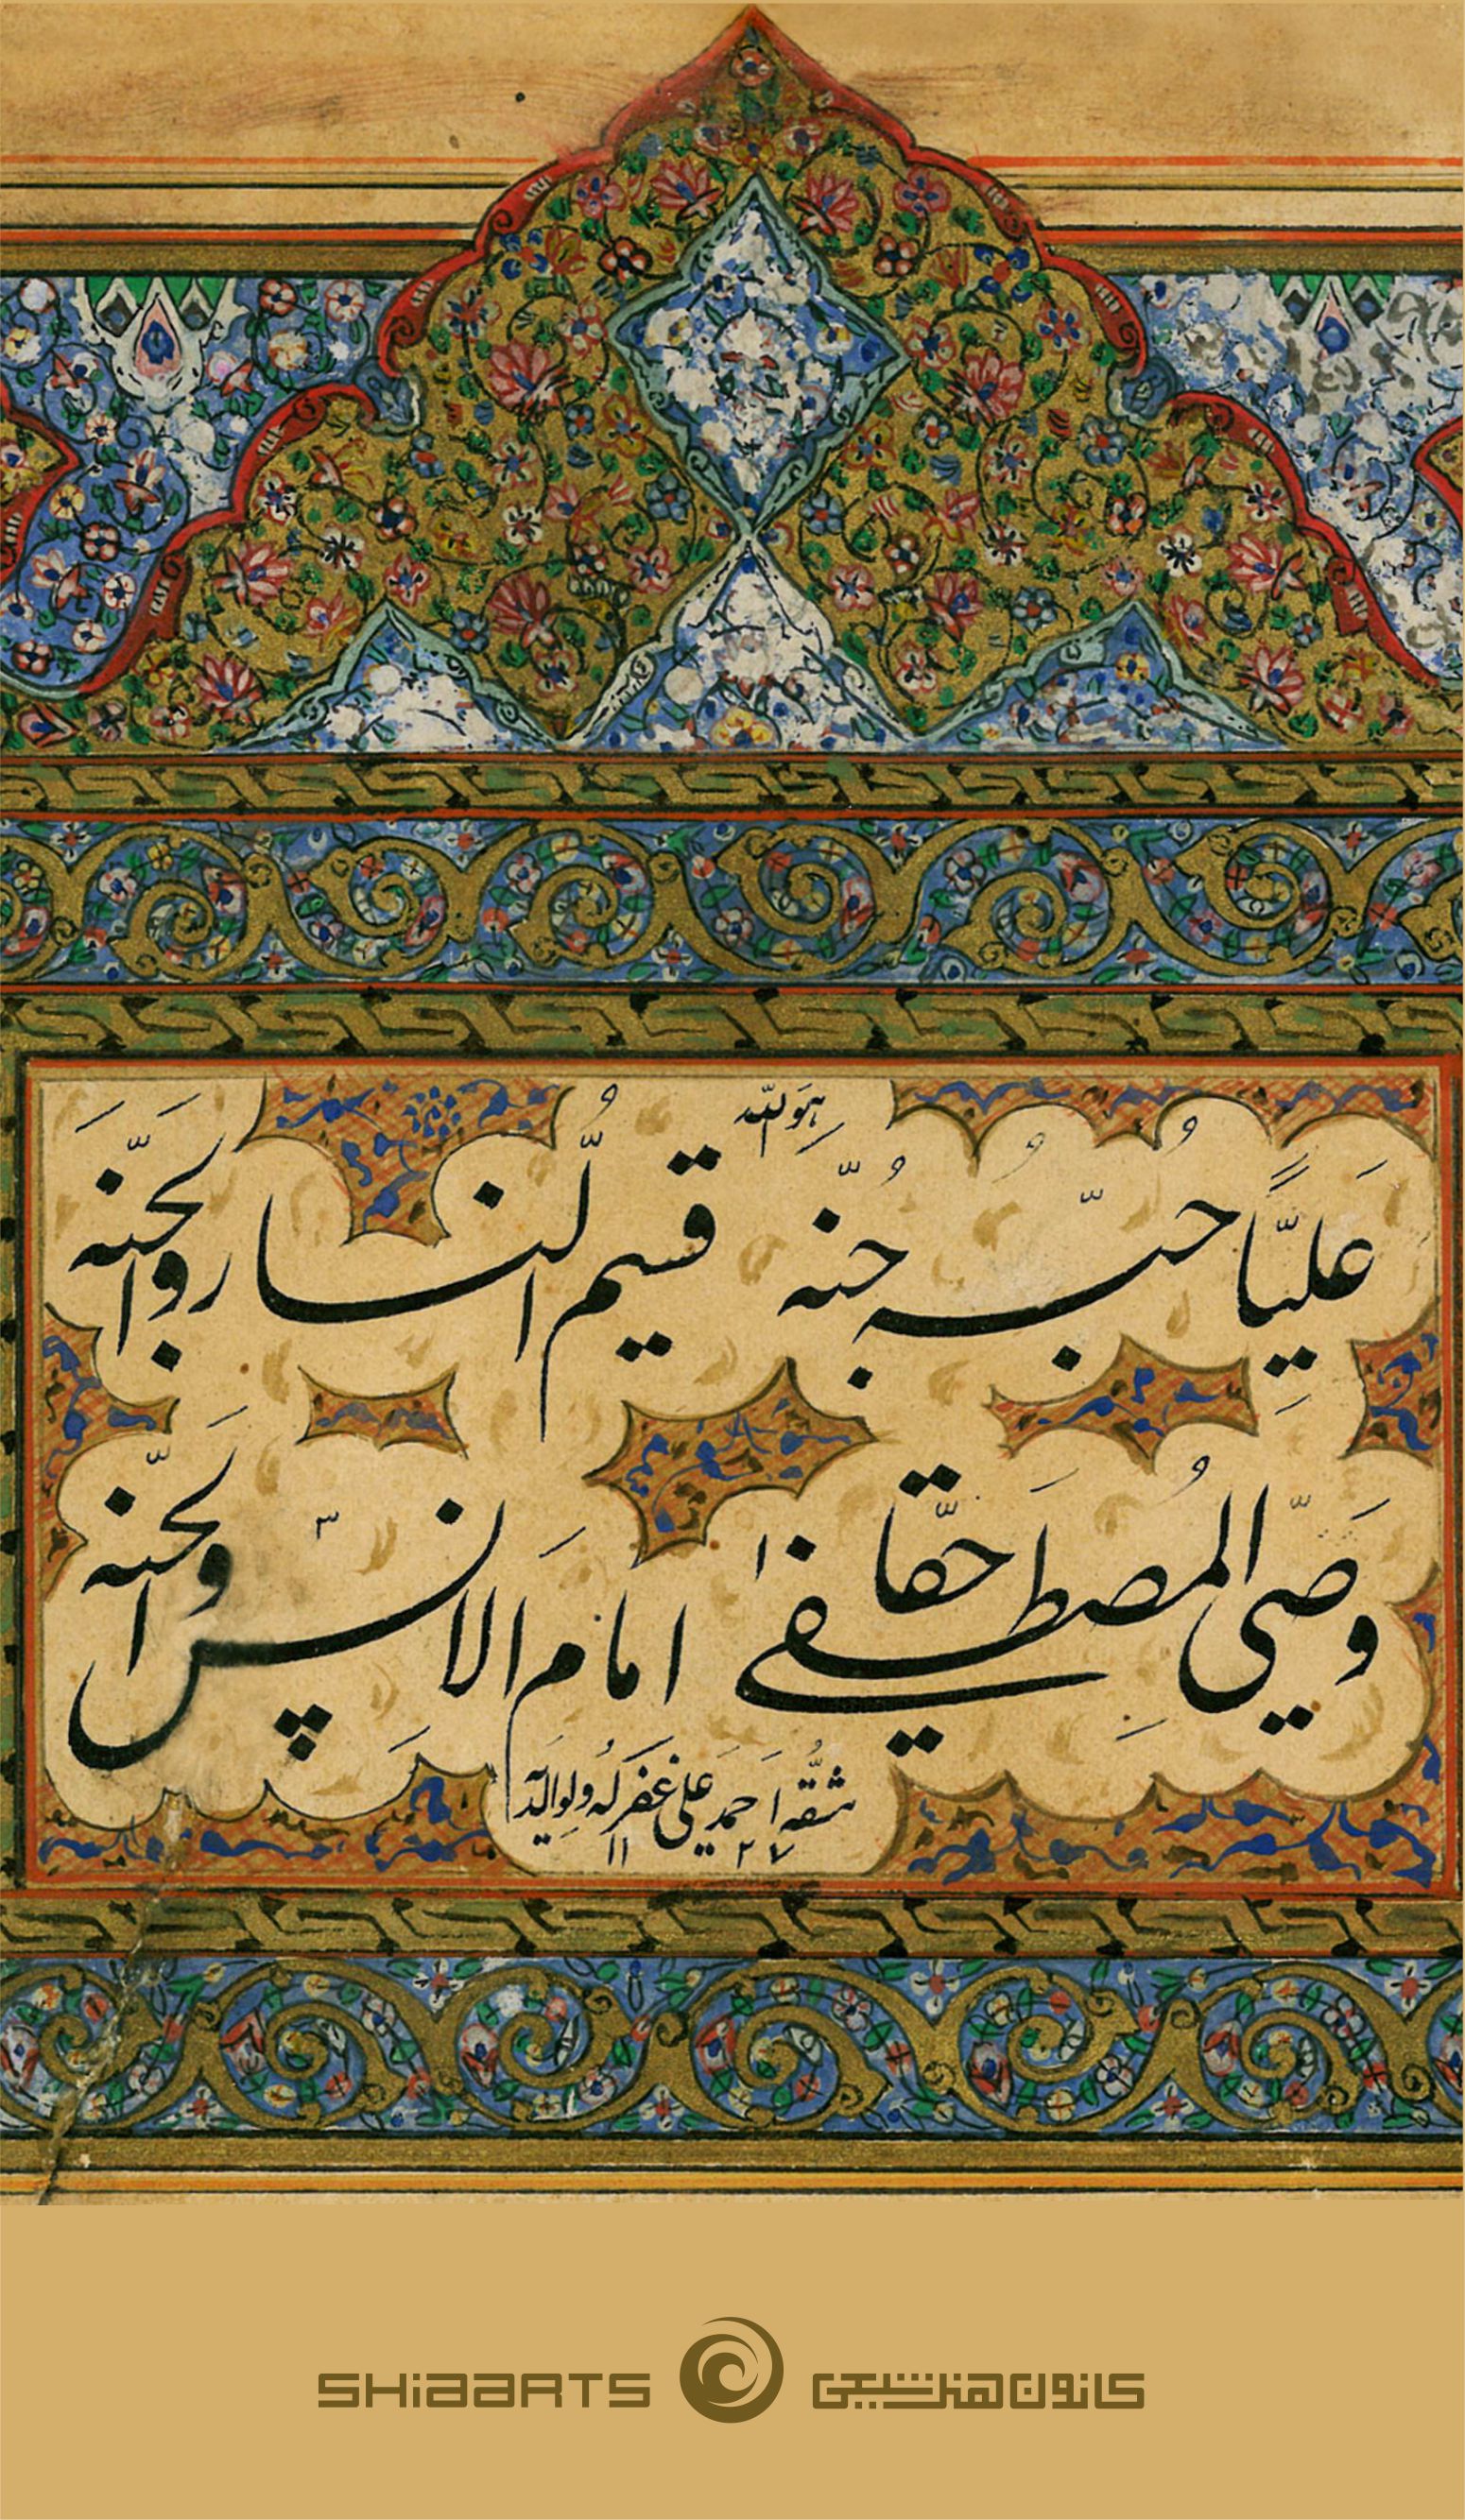 هو الله
علیاً حبه جُنّه قسیم النار والجنّه
وصیّ المصطفی حقا امام الانس والجنّه
مشقه احمد علی غفر له ولوالدیه
۱۱ ۲۷
SHIAARTS کانون هنر شیعی